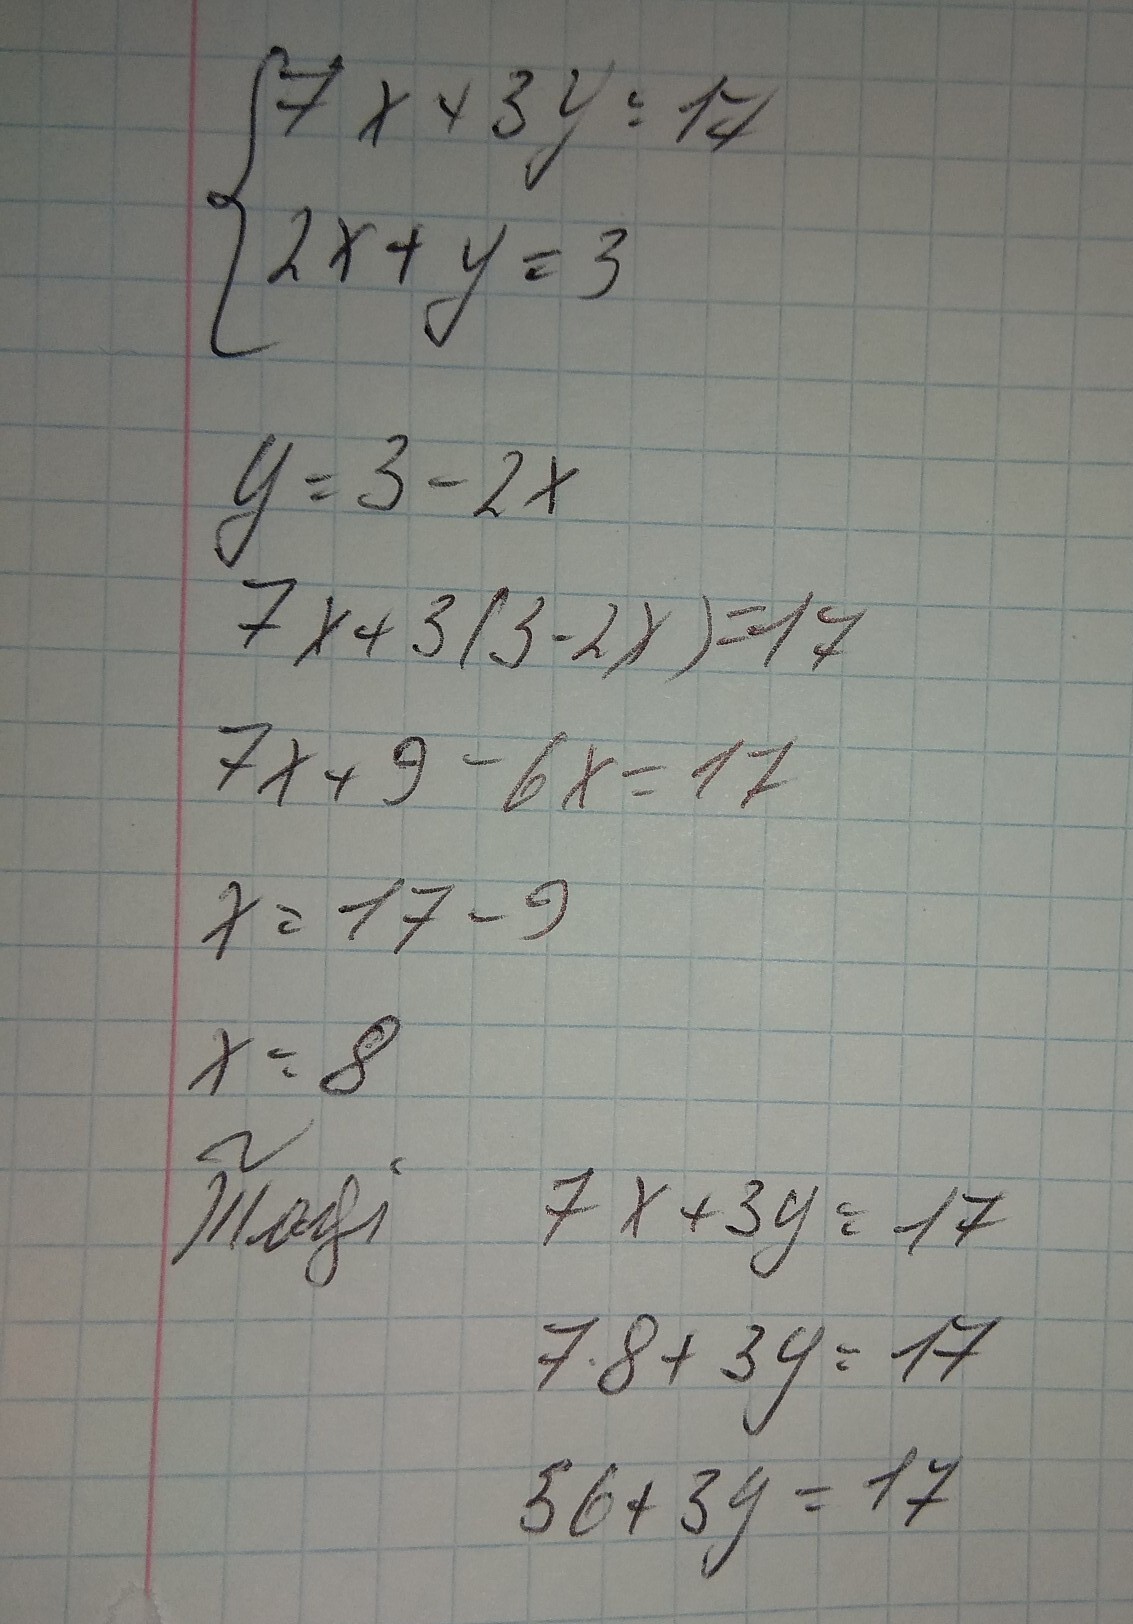 7x+3y=17
2x+y=3
y=3-2x
7x+3(3-2x)=17
7x+9-6x=17
x=17-9
x=8
Тоді 7x+3y=17
7·8+3y=17
56+3y=17